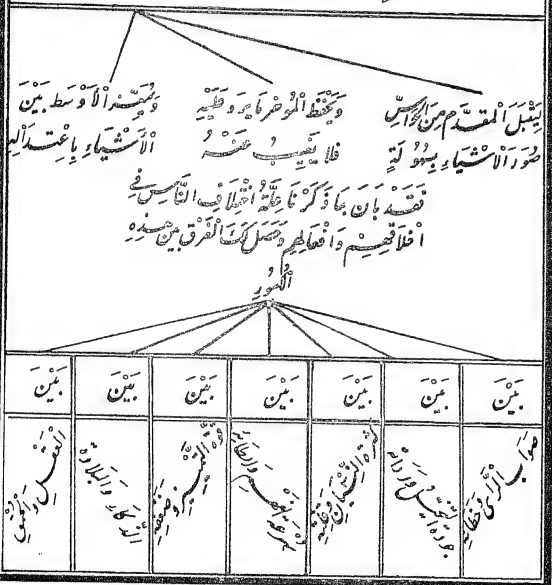 لِيَقْبَلَ الْمُقَدَّمُ مِنَ الْحَوَاسِّ
صُوَرَ الْأَشْيَاءِ بِسُهُولَةٍ
وَيَحْفَظَ الْمُؤَخَّرُ مَا يَرِدُ عَلَيْهِ
فَلَا يَغِيبُ عَنْهُ
وَيُمَيِّزَ الْأَوْسَطُ بَيْنَ
الْأَشْيَاءِ بِاِعْتِدَالِهِ
فَقَدْ بَانَ بِمَا ذَكَرْنَا عِلَّةُ اخْتِلَافِ النَّاسِ فِي
اَخْلَاقِهِمْ وَاَفْعَالِهِمْ وَحَصَلَ لَكَ الْفَرْقُ بَيْنَ هٰذِهِ
الْاُمُورِ
بَيْنَ بَيْنَ بَيْنَ بَيْنَ بَيْنَ بَيْنَ بَيْنَ
صَوَابِ الرَّأْيِ وَخَطَائِهِ
جَوْدَةِ التَّخَيُّلِ وَرَدَاءَتِهِ
كَثْرَةِ النِّسْيَانِ وَقِلَّتِهِ
الْفَهْمِ وَاِبْطَائِهِ
قُوَّةِ التَّمْيِيزِ وَضَعْفِهِ
الذَّكَاءِ وَالْبَلَادَةِ
الْعَقْلِ وَالْحُمْقِ